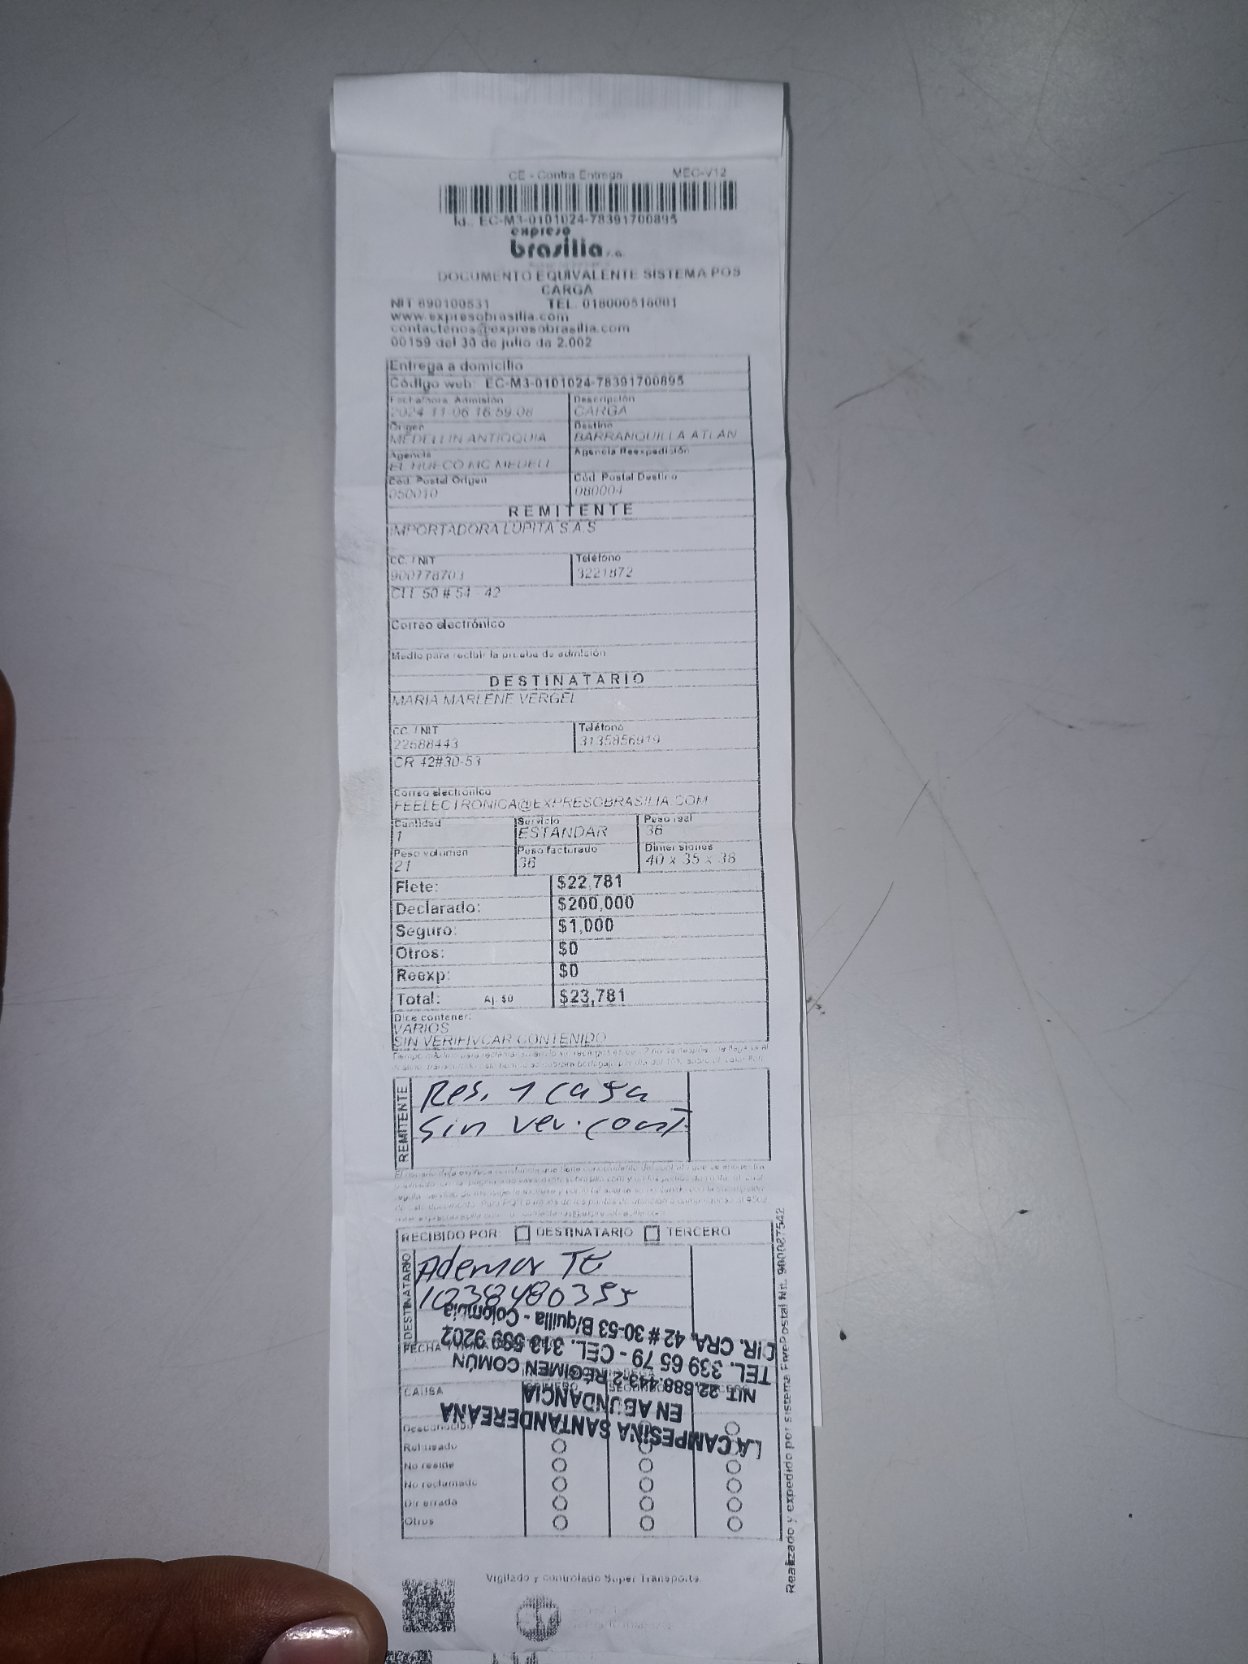 CE - Contra Entrega MEC-V12
Id.: EC-M3-0101024-78391700895
expreso
brasilia s.a.
DOCUMENTO EQUIVALENTE SISTEMA POS
CARGA
NIT 890100531 TEL. 018000518001
www.expresobrasilia.com
contactenos@expresobrasilia.com
00159 del 30 de julio de 2.002
Entrega a domicilio
Código web: EC-M3-0101024-78391700895
Fecha/hora Admisión Descripción
2024-11-06 16:59:08 CARGA
Origen Destino
MEDELLIN ANTIOQUIA BARRANQUILLA ATLAN
Agencia Agencia Reexpedición
EL HUECO MC MEDELL
Cód. Postal Origen Cód. Postal Destino
050010 080004
REMITENTE
IMPORTADORA LUPITA S.A.S
CC. / NIT Teléfono
900778703 3221872
CLL 50 # 54 - 42
Correo electrónico
Medio para recibir la prueba de admisión
DESTINATARIO
MARIA MARLENE VERGEL
CC. / NIT Teléfono
22688443 3135856919
CR 42#30-53
Correo electrónico
FEELECTRONICA@EXPRESOBRASILIA.COM
Cantidad Servicio Peso real
1 ESTANDAR 36
Peso volumen Peso facturado Dimensiones
21 36 40 x 35 x 38
Flete: $22,781
Declarado: $200,000
Seguro: $1,000
Otros: $0
Reexp: $0
Total: Aj. $0 $23,781
Dice contener:
VARIOS
SIN VERIFIVCAR CONTENIDO
REMITENTE
Res. 1 caja
Sin ver. cont.
RECIBIDO POR: DESTINATARIO TERCERO
DESTINATARIO
Ademar
FECHA
CAUSA
Desconocido
Rehusado
No reside
No reclamado
Dir errada
Otros
LA CAMPESINA SANTANDEREANA
EN ABUNDANCIA
NIT. 22.688.443-2 RÉGIMEN COMÚN
TEL. 339 65 79 - CEL. 313 599 9202
DIR. CRA. 42 # 30-53 B/quilla - Colombia
Realizado y expedido por sistema FivePostal Nit. 900087542
Vigilado y controlado Super Transporte